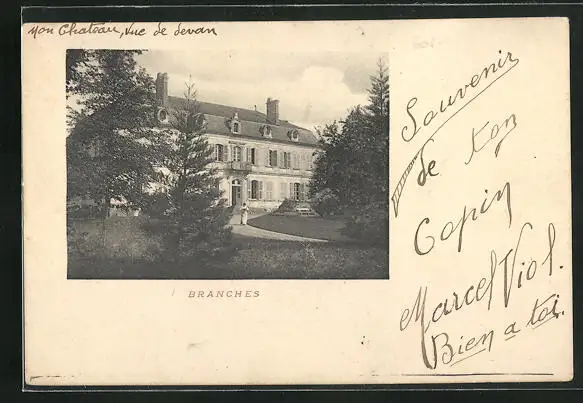 Mon Chateau, Vue de devan
BRANCHES
Souvenir
de ton
Copin
Marcel Viol.
Bien a toi.